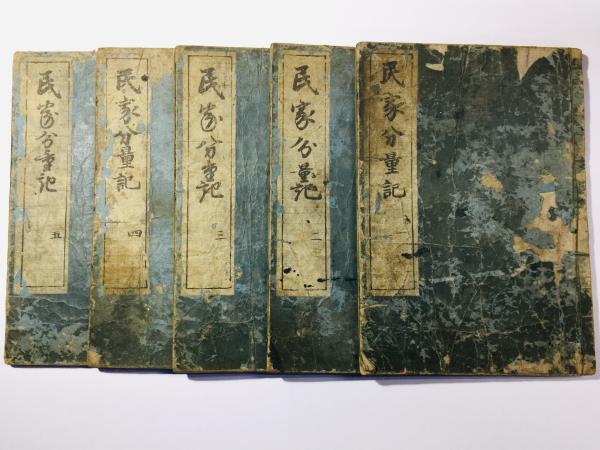 民家分量記 一
民家分量記 二
民家分量記 三
民家分量記 四
民家分量記 五